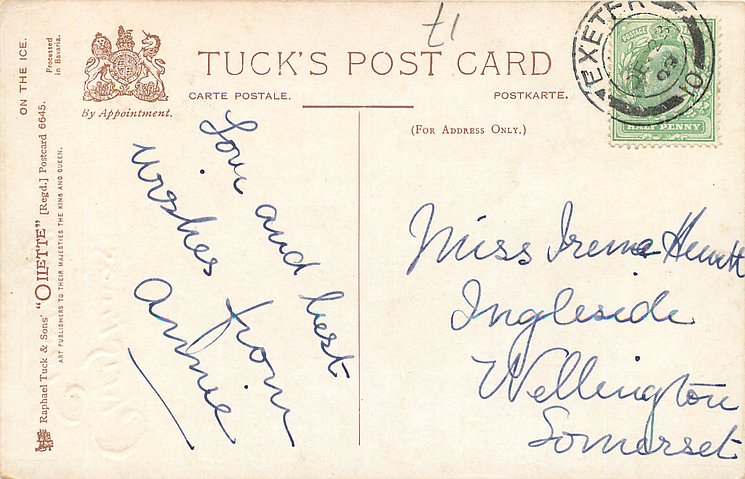 £1
TUCK'S POST CARD
CARTE POSTALE.
POSTKARTE.
By Appointment.
(FOR ADDRESS ONLY.)
EXETER
10
POSTAGE
HALF PENNY
ON THE ICE.
Processed
in Bavaria.
Raphael Tuck & Sons' "OILETTE" [Regd.] Postcard 6645.
ART PUBLISHERS TO THEIR MAJESTIES THE KING AND QUEEN.
Love and best
wishes from
Annie
Miss Irene
Ingleside
Wellington
Somerset